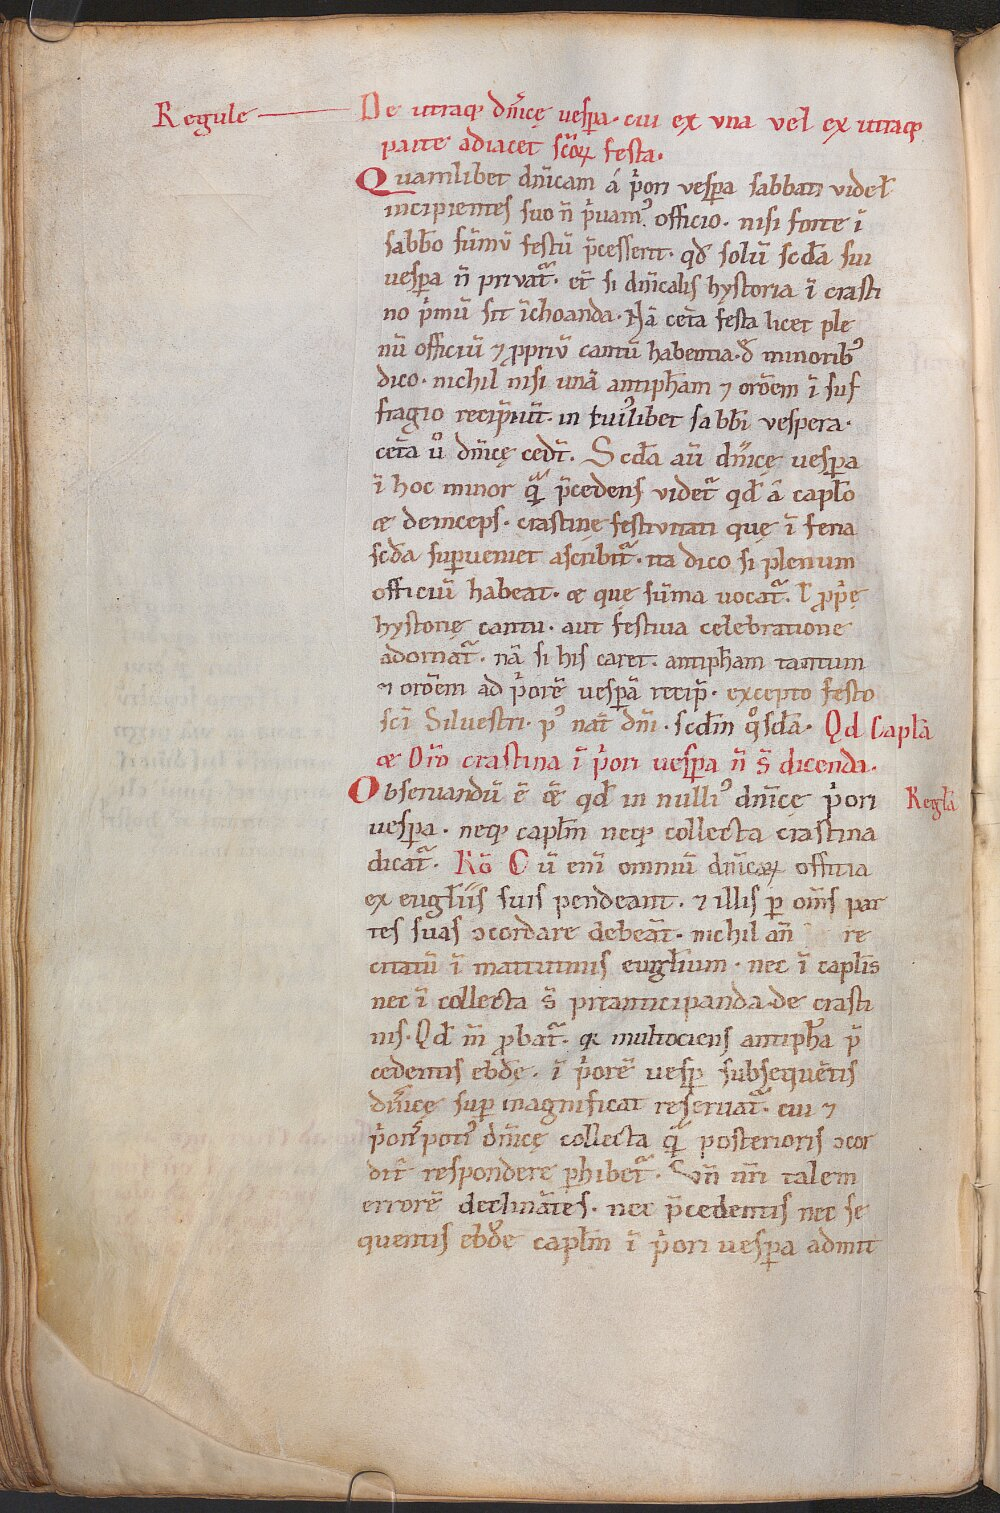 Regule De utraq; dn̄icę uesꝑa. cui ex una uel ex utraq;
parte adiacet sc̄oꝝ festa.
Quamlibet dn̄icam á p̄ori vesꝑa sabbati videt̄
incipientes suo n̄ p̄uam᷒ officio. nisi forte ī
sabb̄o sūmū festū p̄cesserit. qđ solū sc̄da sui
uesꝑa n̄ privat᷑. et̄ si dn̄icalis hystoria ī crasti
no p̄mū sit īchoanda. Nā cet̄a festa licet ple
nū officiū ⁊ ꝓpriū cantū habentia. đ minorib᷒
dico. nichil nisi unā antiph̄am ⁊ or̄oem ī suf
fragio recipiūt. in cui᷒libet sabb̄i vespera.
cet̄a ů dn̄icę ced̄t. Sc̄da aū dn̄icę uesꝑa
ī hoc minor q̄ p̄cedens videt᷑ qđ á capl̄o
& deinceps. crastinę festivitati quę ī feria
sc̄da suꝑueniet ascribit᷑. ita dico si plenum
officiū habeat. & quę sūma uocat᷑. ł ꝓp̄ę
hystorię cantu. aut festiua celebratione
adornat᷑. nā si his caret. antiph̄am tantum
⁊ or̄oem ad p̄orē uesꝑā recip̄. excepto festo
sc̄i Silvestri. p᷒ nat̄ dn̄i. sc̄dm q̊sdā. Qđ Capl̄a
& Or̄o crastina ī p̄ori uesꝑa n̄ s̄ dicenda.
Obseruandū ē &̄ qđ in nulli᷒ dn̄icę p̄ori Regl̄a
uesꝑa. neq; capl̄m neq; collecta crastina
dicat᷑. Rō Cū enī omniū dn̄icaꝝ offitia
ex eugl̄iis suis pendeant. ⁊ illis ꝑ om̄s par
tes suas ↄcordare debeāt. nichil an̄ re
citatū ī matutinis eugl̄ium. nec ī capl̄is
nec ī collecta s̄ preanticipanda de crasti
nis. Qđ īn ꝓbat᷑. qꝛ multociens antiph̄a p̄
cedentis ebđę. ī p̄orē uesꝑ subsequētis
dn̄icę suꝑ magnificat reseruat᷑. cui ⁊
p̄oris poti᷒ dn̄icę collecta q̄ posterioris ↄcor
dit̄ respondere ꝑhibet᷑. n̄ri talem
errorē declinātes. nec p̄cedentis nec se
quentis ebđę capl̄m ī p̄ori uesꝑa admit